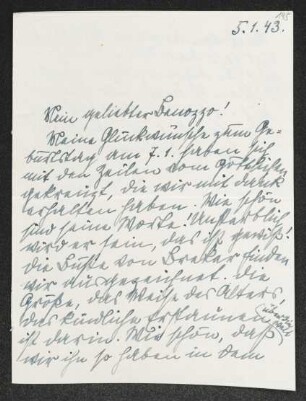 5.1.43.
Mein geliebter Benozzo!
Meine Glückwünsche zum Ge-
burtstag am 7.1. haben sich
mit den Zeilen vom
gekreuzt, die wir mit Dank
erhalten haben. Wie schön
sind seine Worte! Unsterblich
wird er sein, das ist gewiß!
Die Büste von Breker finden
wir ausgezeichnet. Die
Größe, das Weise des Alters,
das kindliche Erstaunen
ist darin. Wie schön, daß
wir ihn so haben in dem